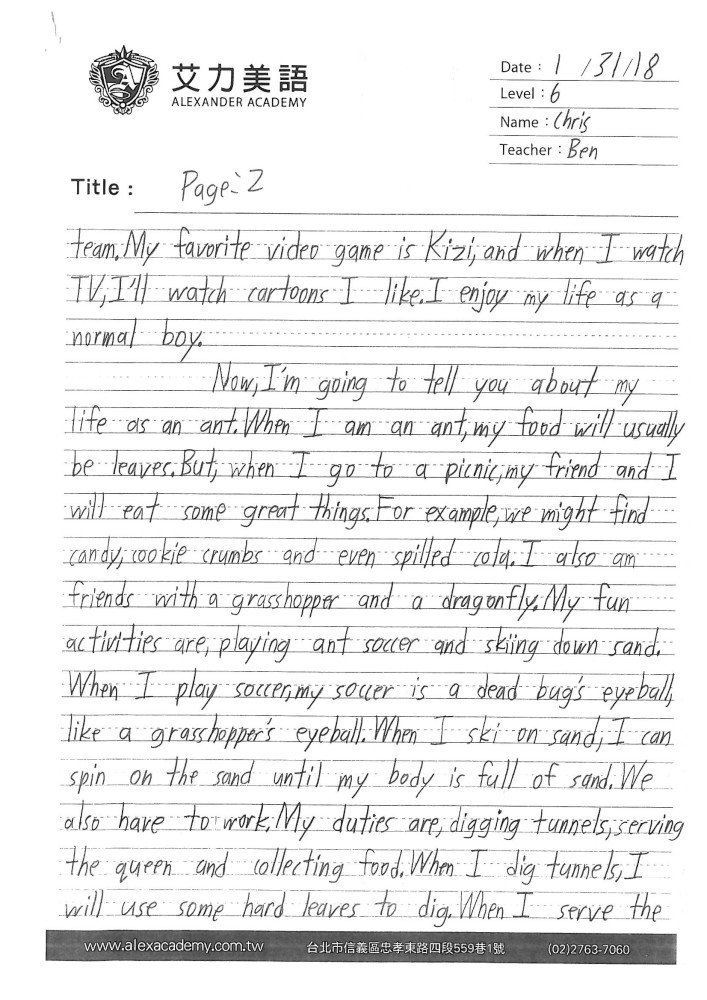 艾力美語
ALEXANDER ACADEMY
Date : 1/31/18
Level : 6
Name : Chris
Teacher : Ben
Title : Page: 2
team. My favorite video game is Kizi, and when I watch
TV, I'll watch cartoons I like. I enjoy my life as a
normal boy.
Now, I'm going to tell you about my
life as an ant. When I am an ant, my food will usually
be leaves. But, when I go to a picnic, my friend and I
will eat some great things. For example, we might find
candy, cookie crumbs and even spilled cola. I also am
friends with a grasshopper and a dragonfly. My fun
activities are, playing ant soccer and skiing down sand.
When I play soccer, my soccer is a dead bug's eyeball,
like a grasshopper's eyeball. When I ski on sand, I can
spin on the sand until my body is full of sand. We
also have to work. My duties are, digging tunnels, serving
the queen and collecting food. When I dig tunnels, I
will use some hard leaves to dig. When I serve the
www.alexacademy.com.tw 台北市信義區忠孝東路四段559巷1號 (02)2763-7060